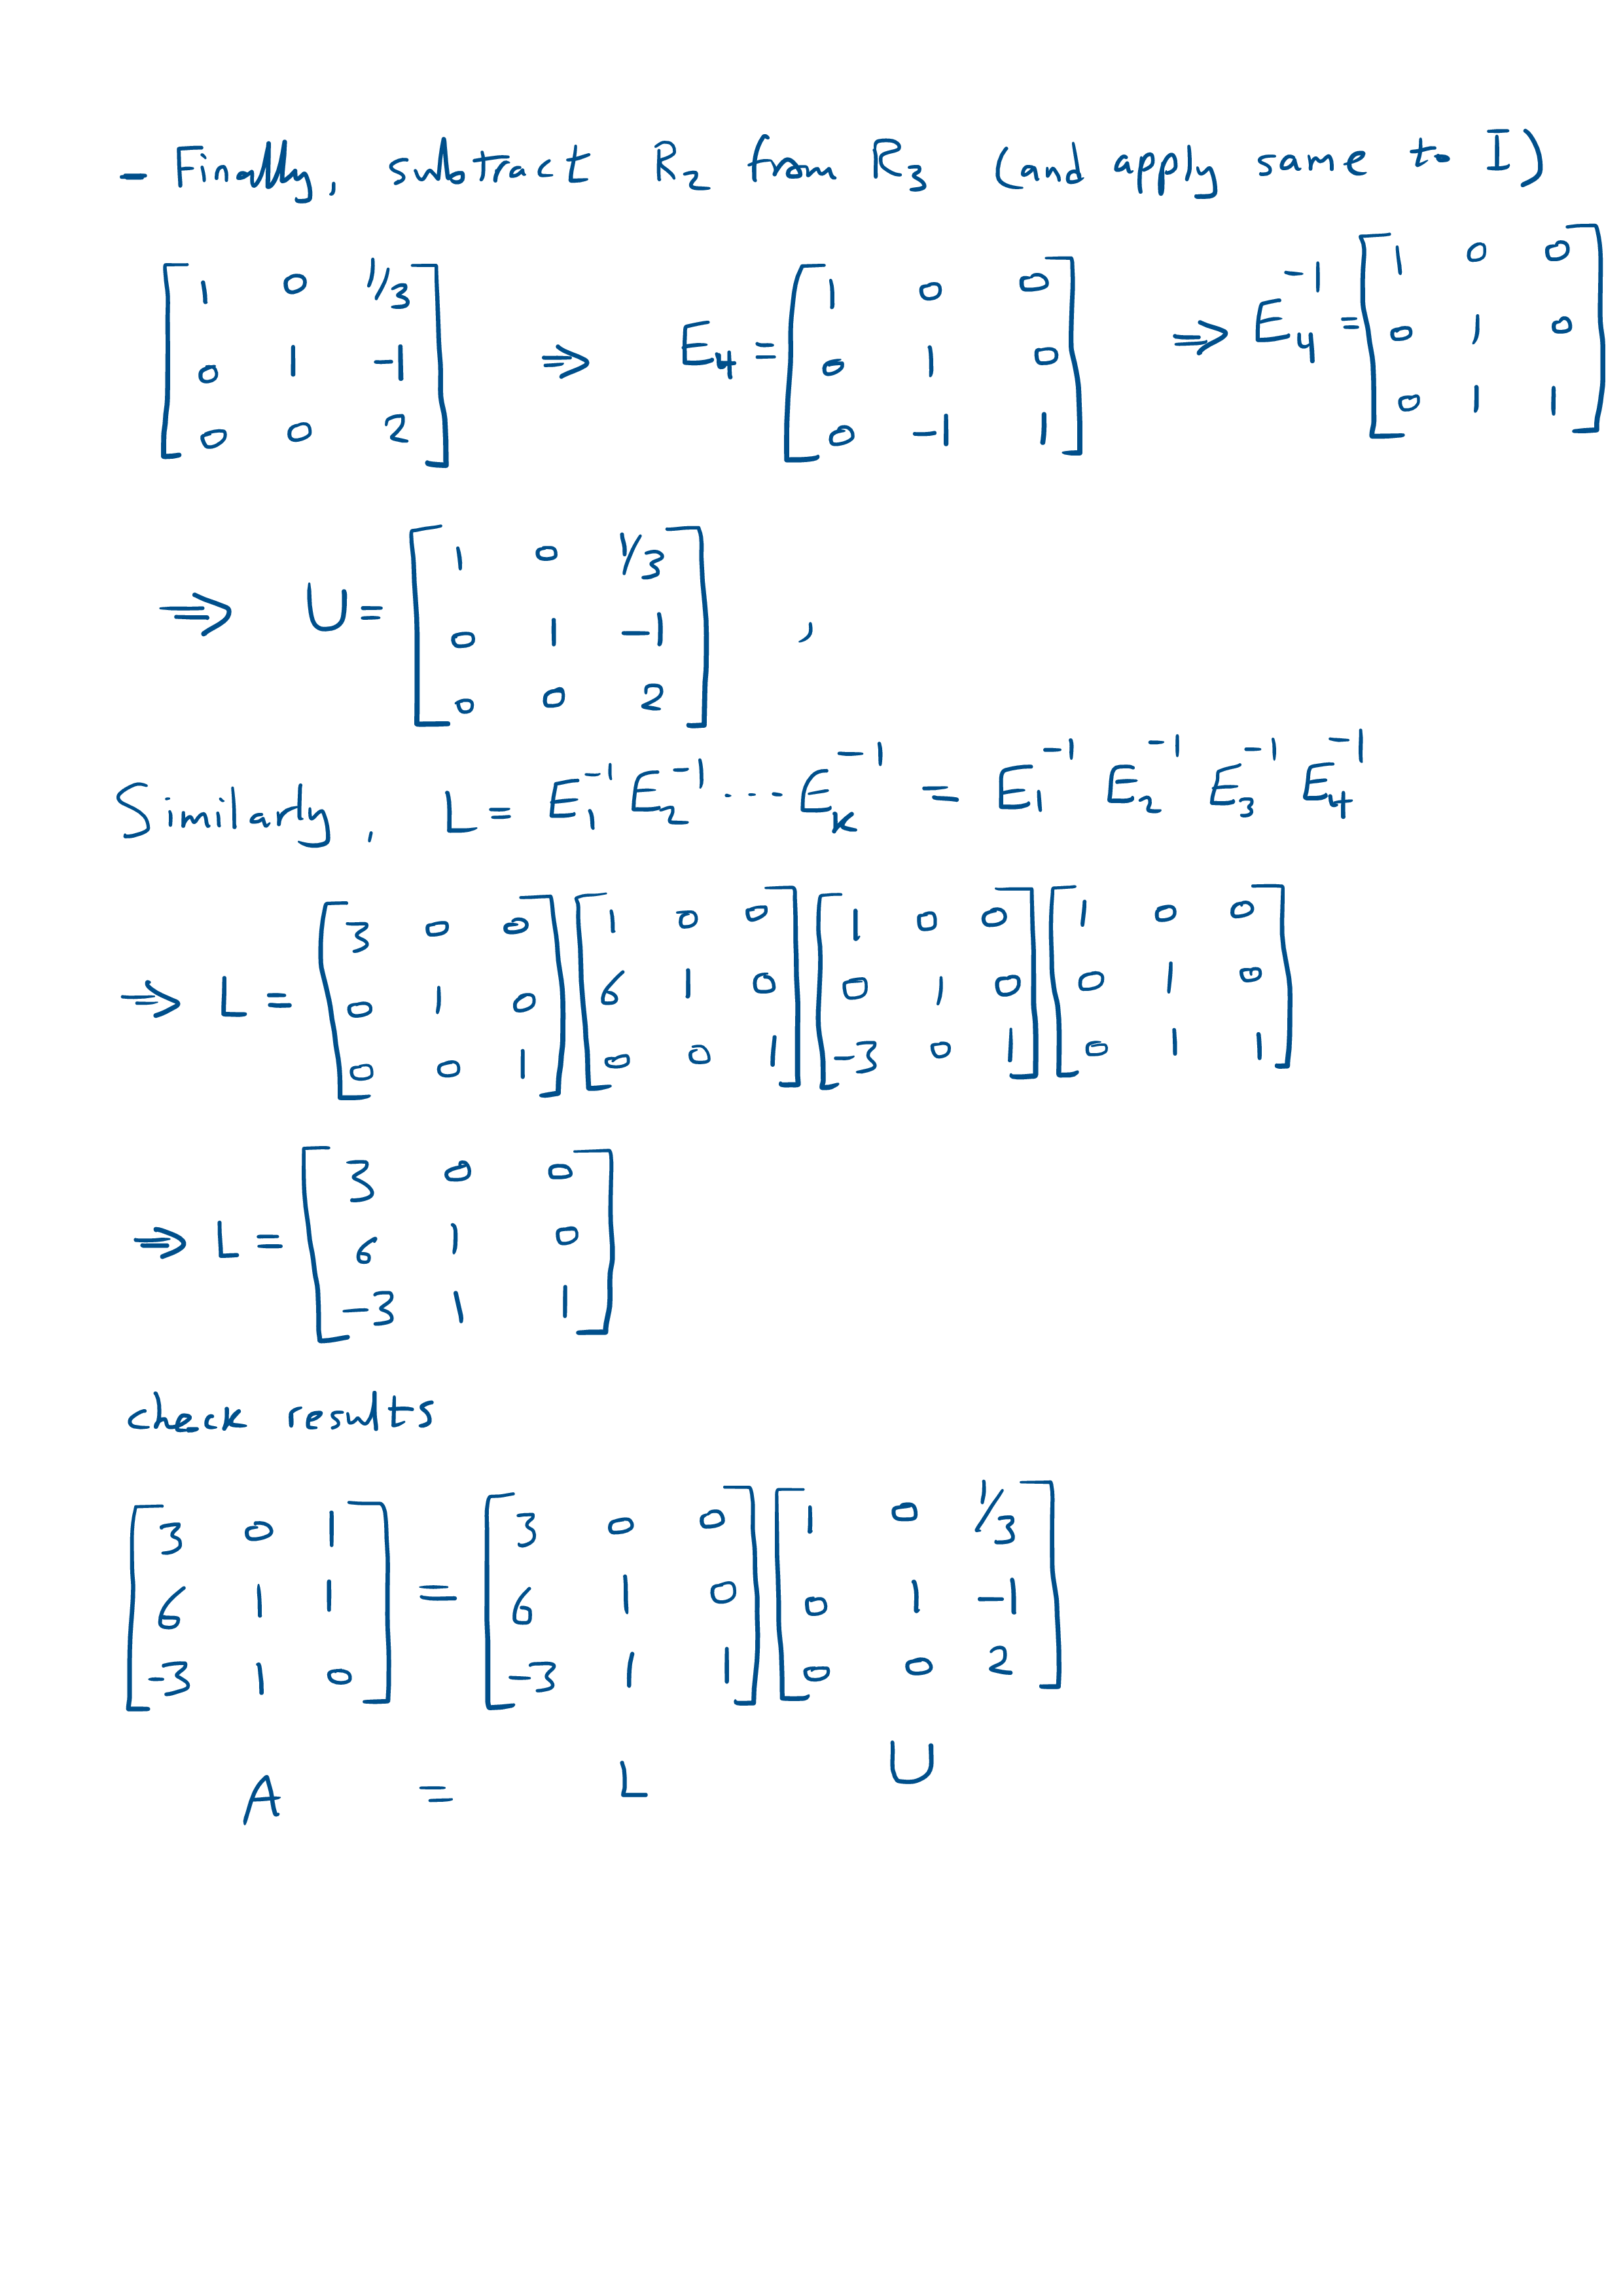 - Finally, subtract R₂ from R₃ (and apply same to I)
[1 0 1/3; 0 1 -1; 0 0 2] ⇒ E₄ = [1 0 0; 0 1 0; 0 -1 1] ⇒ E₄⁻¹ = [1 0 0; 0 1 0; 0 1 1]
⇒ U = [1 0 1/3; 0 1 -1; 0 0 2] ,
Similarly, L = E₁⁻¹ E₂⁻¹ ··· E_K⁻¹ = E₁⁻¹ E₂⁻¹ E₃⁻¹ E₄⁻¹
⇒ L = [3 0 0; 0 1 0; 0 0 1] [1 0 0; 6 1 0; 0 0 1] [1 0 0; 0 1 0; -3 0 1] [1 0 0; 0 1 0; 0 1 1]
⇒ L = [3 0 0; 6 1 0; -3 1 1]
check results
[3 0 1; 6 1 1; -3 1 0] = [3 0 0; 6 1 0; -3 1 1] [1 0 1/3; 0 1 -1; 0 0 2]
A = L U